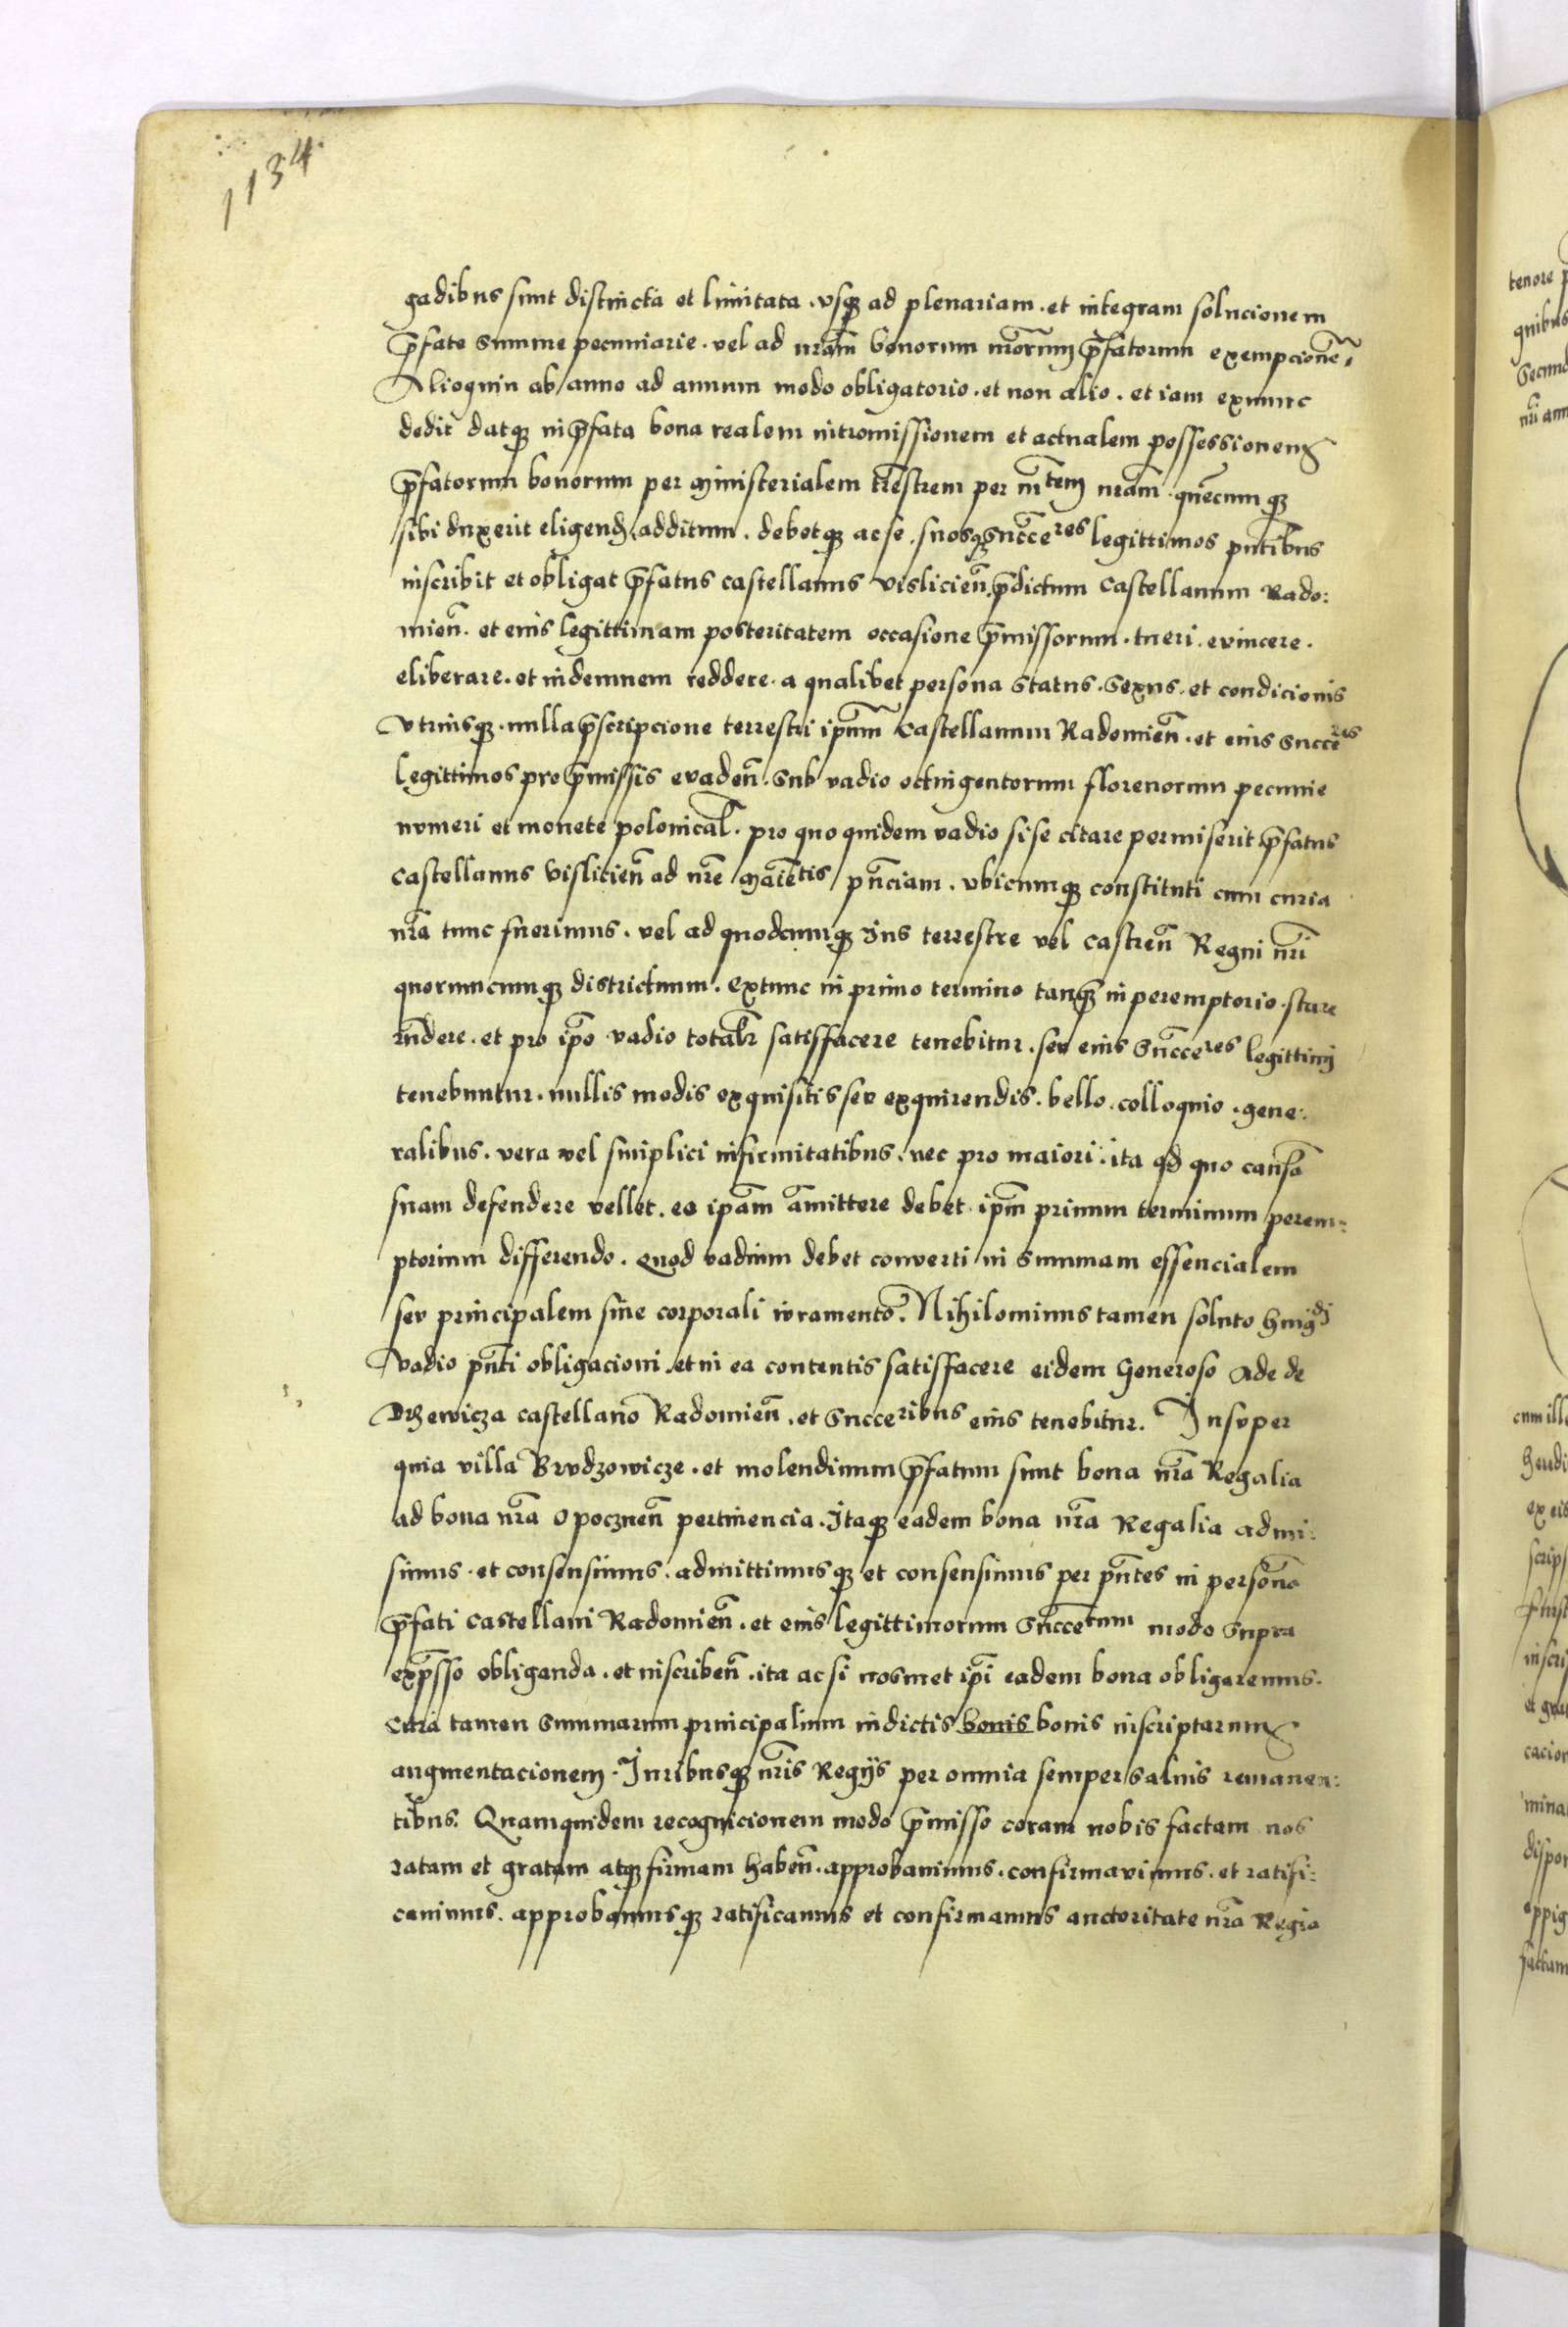 1134.
gadibus sunt distincta et limitata . vsq̄ ad plenariam . et integram solucionem
p̄fate summe pecuniarie . vel ad nr̄am bonorum nr̄orum p̄fatorum exempcionē .
Alioquin ab anno ad annum modo obligatorio . et non alio . et iam exnunc
dedit datq̄ in p̄fata bona realem intromissionem et actualem possessionem
p̄fatorum bonorum per ministerialem tr̄estrem per m̄tem nr̄am . quēcumq̄
sibi duxerit eligend̄ additum . debetq̄ ac se . suosq̄ succēres legittimos pn̄tibus
inscribit et obligat p̄fatus castellanus vislicien̄ . p̄dictum castellanum Rado:
mien̄ . et eius legittimam posteritatem occasione p̄missorum . tueri . evincere .
eliberare . et indemnem reddere . a qualibet persona status . sexus . et condicionis
vtriusq̄ . nulla p̄scripcione terrestri ip̄um castellanum Radomien̄ . et eius succēres
legittimos pro p̄missis evaden̄ . sub vadio octingentorum florenorum pecunie
numeri et monete polonical̄ . pro quo quidem vadio si se citare permiserit p̄fatus
castellanus vislicien̄ ad nr̄e Maiēstis pn̄ciam . vbicumq̄ constituti cum curia
nr̄a tunc fuerimus . vel ad quodcumq̄ Ius terrestre vel castren̄ Regni nr̄i
quorumcumq̄ districtuum . extunc in primo termino tanq̄ in peremptorio . stare
rn̄dere . et pro ip̄o vadio totalr̄ satisfacere tenebitur . seu eius succēres legittimi
tenebuntur . nullis modis exquisitis seu exquirendis . bello . colloquio . gene:
ralibus . vera vel simplici infirmitatibus . nec pro maiori . ita qd̄ quo causā
suam defendere vellet . eo ip̄am amittere debet . ip̄m primum terminum perem:
ptorium differendo . Quod vadium debet converti in summam essencialem
seu principalem sine corporali iuramento . Nihilominus tamen soluto huiqdi
vadio pn̄ti obligacioni . et in ea contentis satisfacere eidem Generoso Ade de
Drzewicza castellano Radomien̄ . et succēribus eius tenebitur . Insuper
quia villa Brudzowicze . et molendinum p̄fatum sunt bona nr̄a Regalia
ad bona nr̄a opocznen̄ pertinencia . Itaq̄ eadem bona nr̄a Regalia admi:
simus . et consensimus . admittimusq̄ et consensimus per pn̄tes in personā
p̄fati castellani Radomien̄ . et eius legittimorum succērum modo supra
exp̄sso obliganda . et inscriben̄ . ita ac si nosmet ip̄i eadem bona obligaremus .
citra tamen summarum principalium in dictis bonis bonis inscriptarum
augmentacionem . Iuribusq̄ nr̄is Regijs per omnia semper saluis remanen:
tibus . Quamquidem recognicionem modo p̄misso coram nobis factam nos
ratam et gratam atq̄ firmam haben̄ . approbauimus . confirmavimus . et ratifi:
cauimus . approbamusq̄ ratificamus et confirmamus auctoritate nr̄a Regia